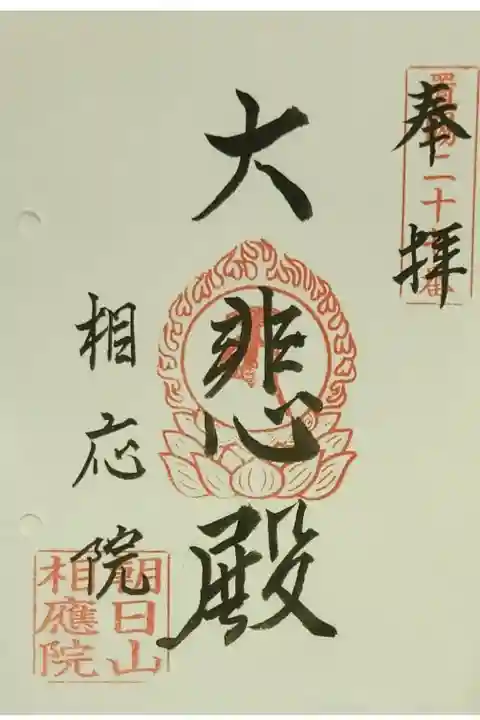 奉拝
二十
大悲殿
相応院
朝日山
相應院